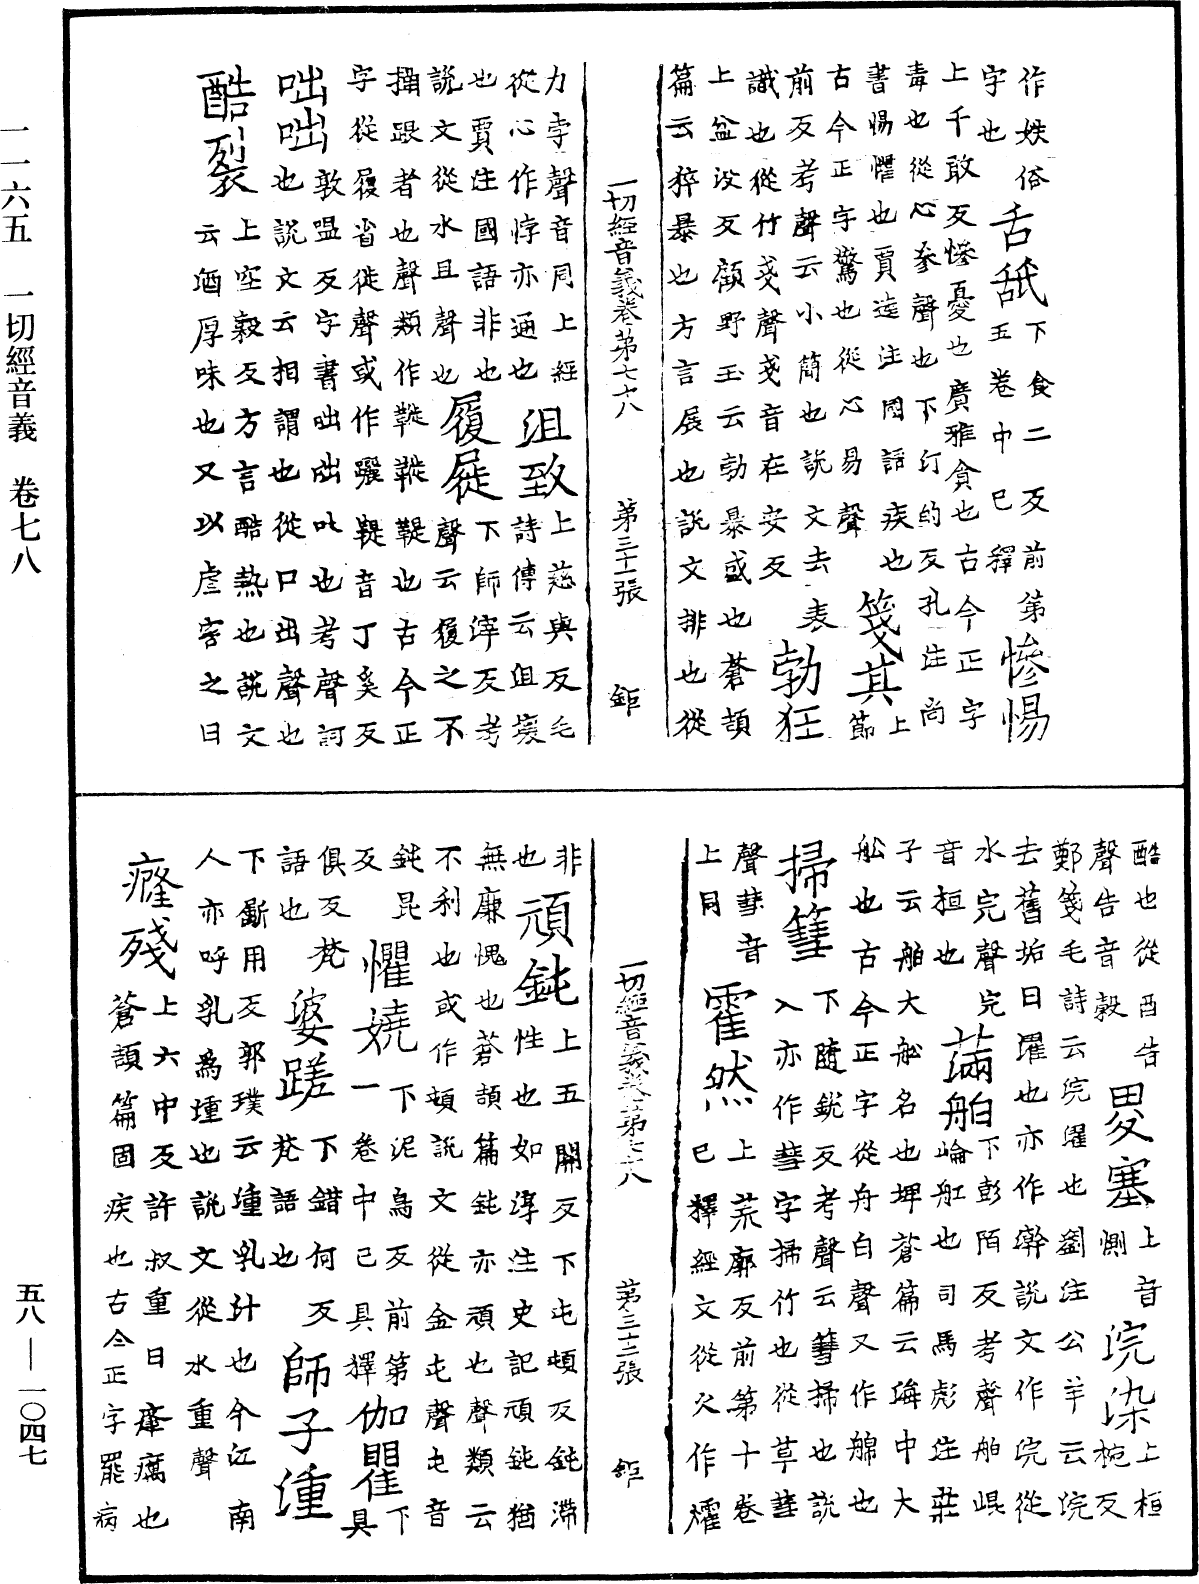 一一六五　一切經音義　卷七八
作㛂俗
字也
舌舐 下食二反前第五卷中已釋
慘惕
上千敢反慘憂也廣雅貪也古今正字
毒也從心參聲也下汀的反孔注尚
書惕懼也賈逵注國語疾也
古今正字驚也從心易聲
箋其 上節
前反考聲云小簡也說文去表
識也從竹戔聲戔音在安反
勃狂
上盆沒反顧野王云勃暴或也蒼頡
篇云猝暴也方言展也說文排也從
一切經音義卷第七十八　第三十一張　鉅
力孛聲音同上經
從心作悖亦通也
沮致 上慈與反毛詩傳云沮壞
也賈注國語非也
說文從水且聲也
履屣 下師滓反考聲云履之不
攝跟者也聲類作鞢鞢鞮也古今正
字從履省徙聲或作躧鞮音丁奚反
咄咄 敦嗢反字書咄咄叱也考聲訶
也說文云相謂也從口出聲也
酷裂 上空穀反方言酷熱也說文
云酒厚味也又以虐害之曰
酷也從酉告
聲告音穀
畟塞 上音側
垸染 上桓椀反
鄭箋毛詩云浣濯也劉注公羊云浣
去舊垢曰濯也亦作澣說文作浣從
水完聲完
音桓也
滿舶 下彭陌反考聲舶崐
崘舡也司馬彪注莊
子云舶大舩名也埤蒼篇云海中大
舩也古今正字從舟白聲又作艊也
掃篲 下隨銳反考聲云篲掃也說
入亦作彗字掃竹也從草彗
聲彗音
上同
霍然 上荒廓反前第十卷
已釋經文從火作㸌
一切經音義卷第七十八　第三十二張　鉅
非
也
頑鈍 上五關反下屯頓反鈍滯
性也如淳注史記頑鈍猶
無廉愧也蒼頡篇鈍亦頑也聲類云
不利也或作頓說文從金屯聲屯音
鈍昆
反
懼嬈 下泥鳥反前第
一卷中已具釋
伽瞿 下具
俱反梵
語也
婆蹉 下錯何反
梵語也
師子湩
下斸用反郭璞云湩乳汁也今江南
人亦呼乳爲湩也說文從水重聲
癃殘 上六中反許叔重曰癃癘也
蒼頡篇固疾也古今正字罷病
五八—一〇四七